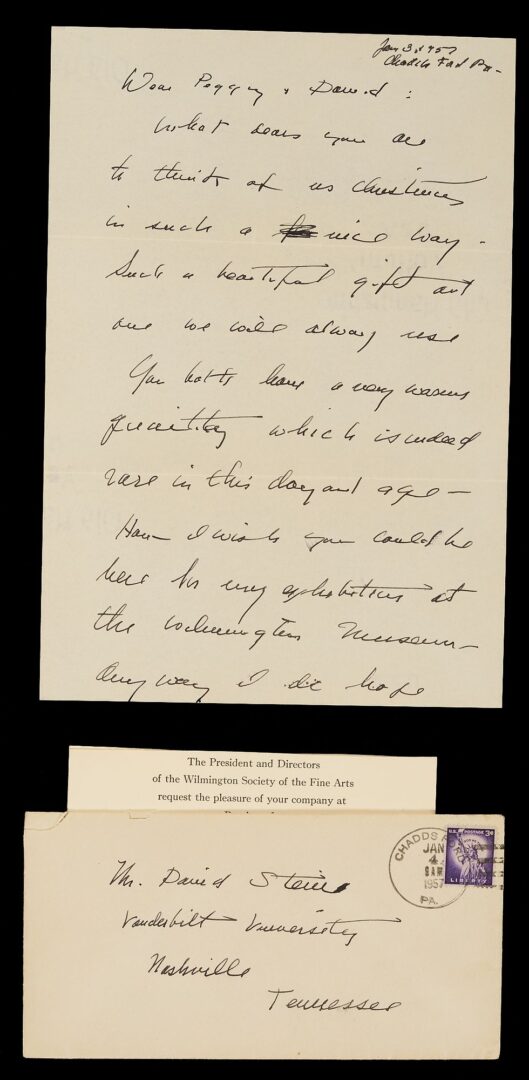 Jan 3, 1957
Chadds Ford Pa -
Dear Peggy & David:
What dears you are
to think of us Christmas
in such a nice way -
Such a beautiful gift and
one we will always use
You both have a very warm
quality which is indeed
rare in this day and age -
How I wish you could be
here for my exhibition at
the Wilmington Museum -
Anyway I do hope
The President and Directors
of the Wilmington Society of the Fine Arts
request the pleasure of your company at
CHADDS FORD
JAN
4
8 AM
1957
PA.
U.S. POSTAGE 3¢
LIBERTY
Mr. David Steine
Vanderbilt University
Nashville
Tennessee